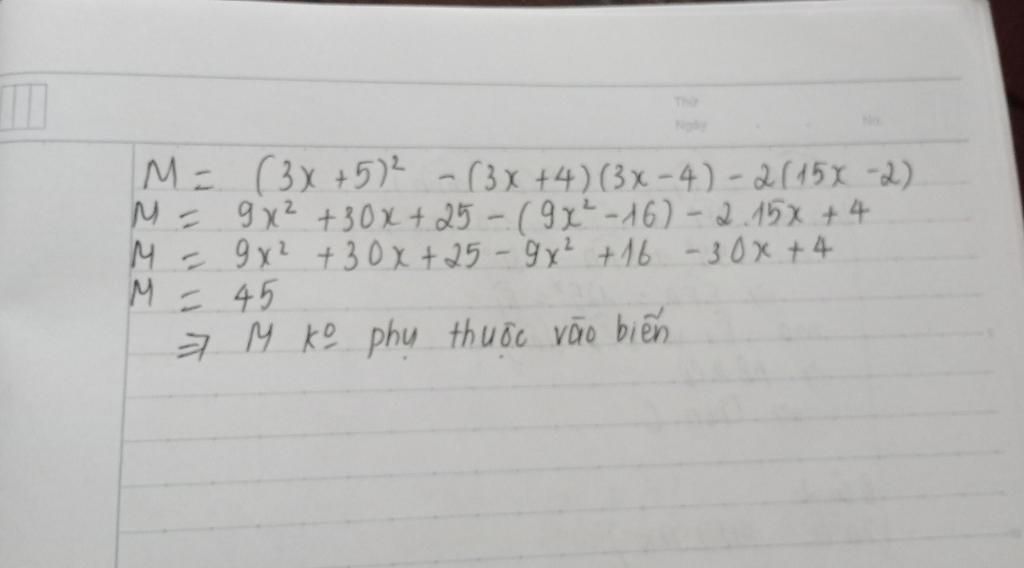 Thứ
Ngày
No.
M = (3x + 5)² - (3x + 4)(3x - 4) - 2(15x - 2)
M = 9x² + 30x + 25 - (9x² - 16) - 2.15x + 4
M = 9x² + 30x + 25 - 9x² + 16 - 30x + 4
M = 45
⇒ M ko phụ thuộc vào biến